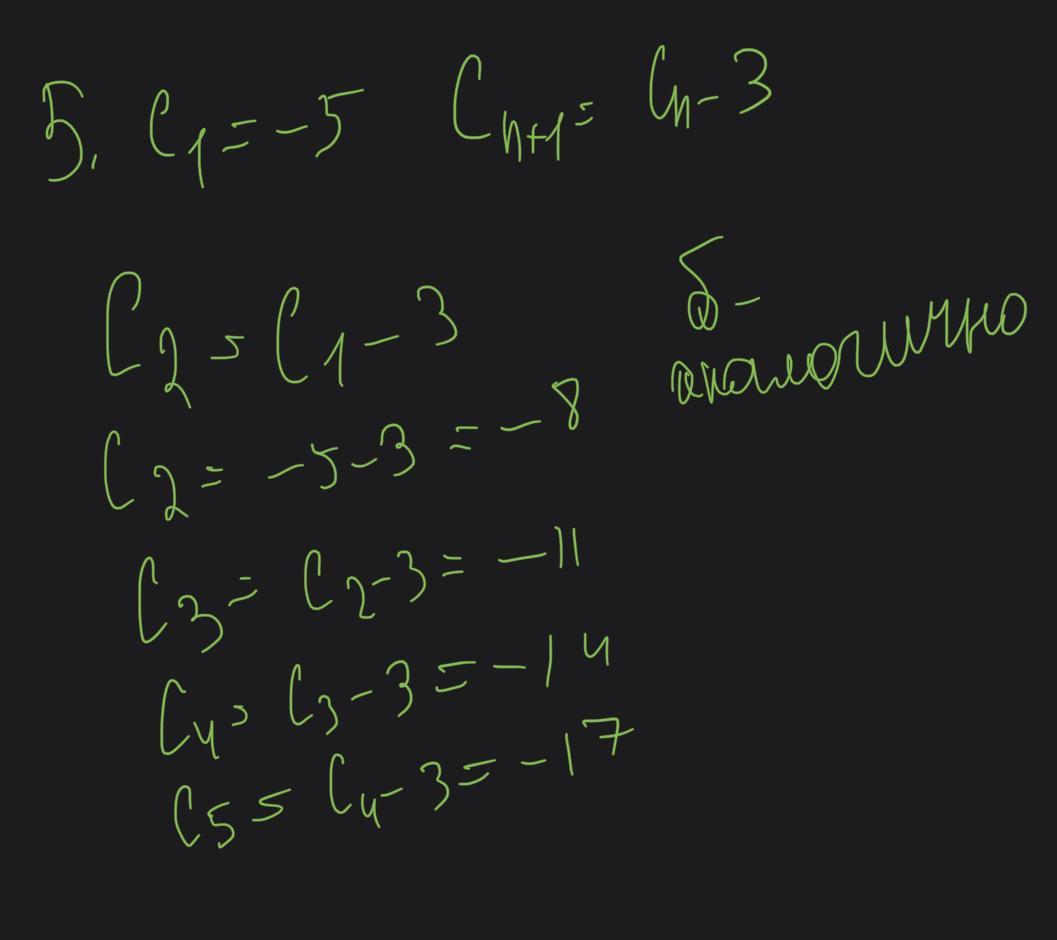 5. C₁ = -5 Cₙ₊₁ = Cₙ - 3
C₂ = C₁ - 3
C₂ = -5 - 3 = -8
C₃ = C₂ - 3 = -11
C₄ = C₃ - 3 = -14
C₅ = C₄ - 3 = -17
б -
аналогично